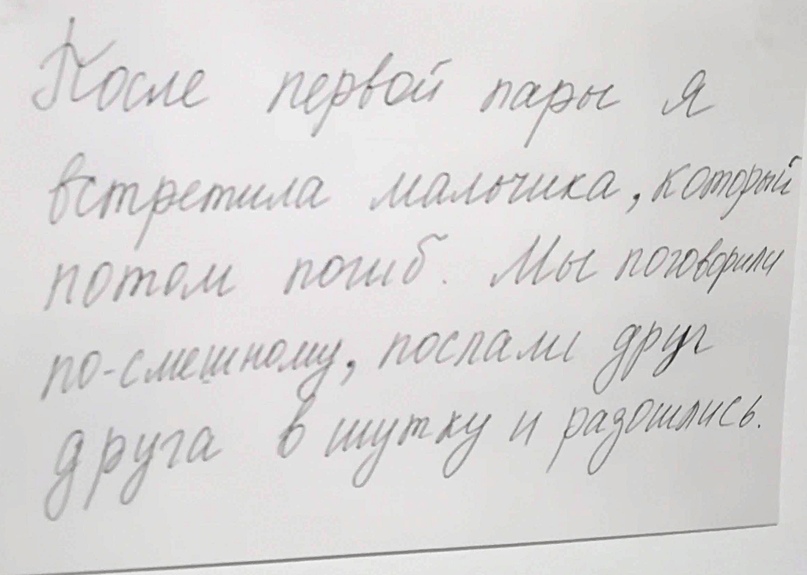 После первой пары я
встретила мальчика, который
потом погиб. Мы поговорили
по-смешному, послали друг
друга в шутку и разошлись.